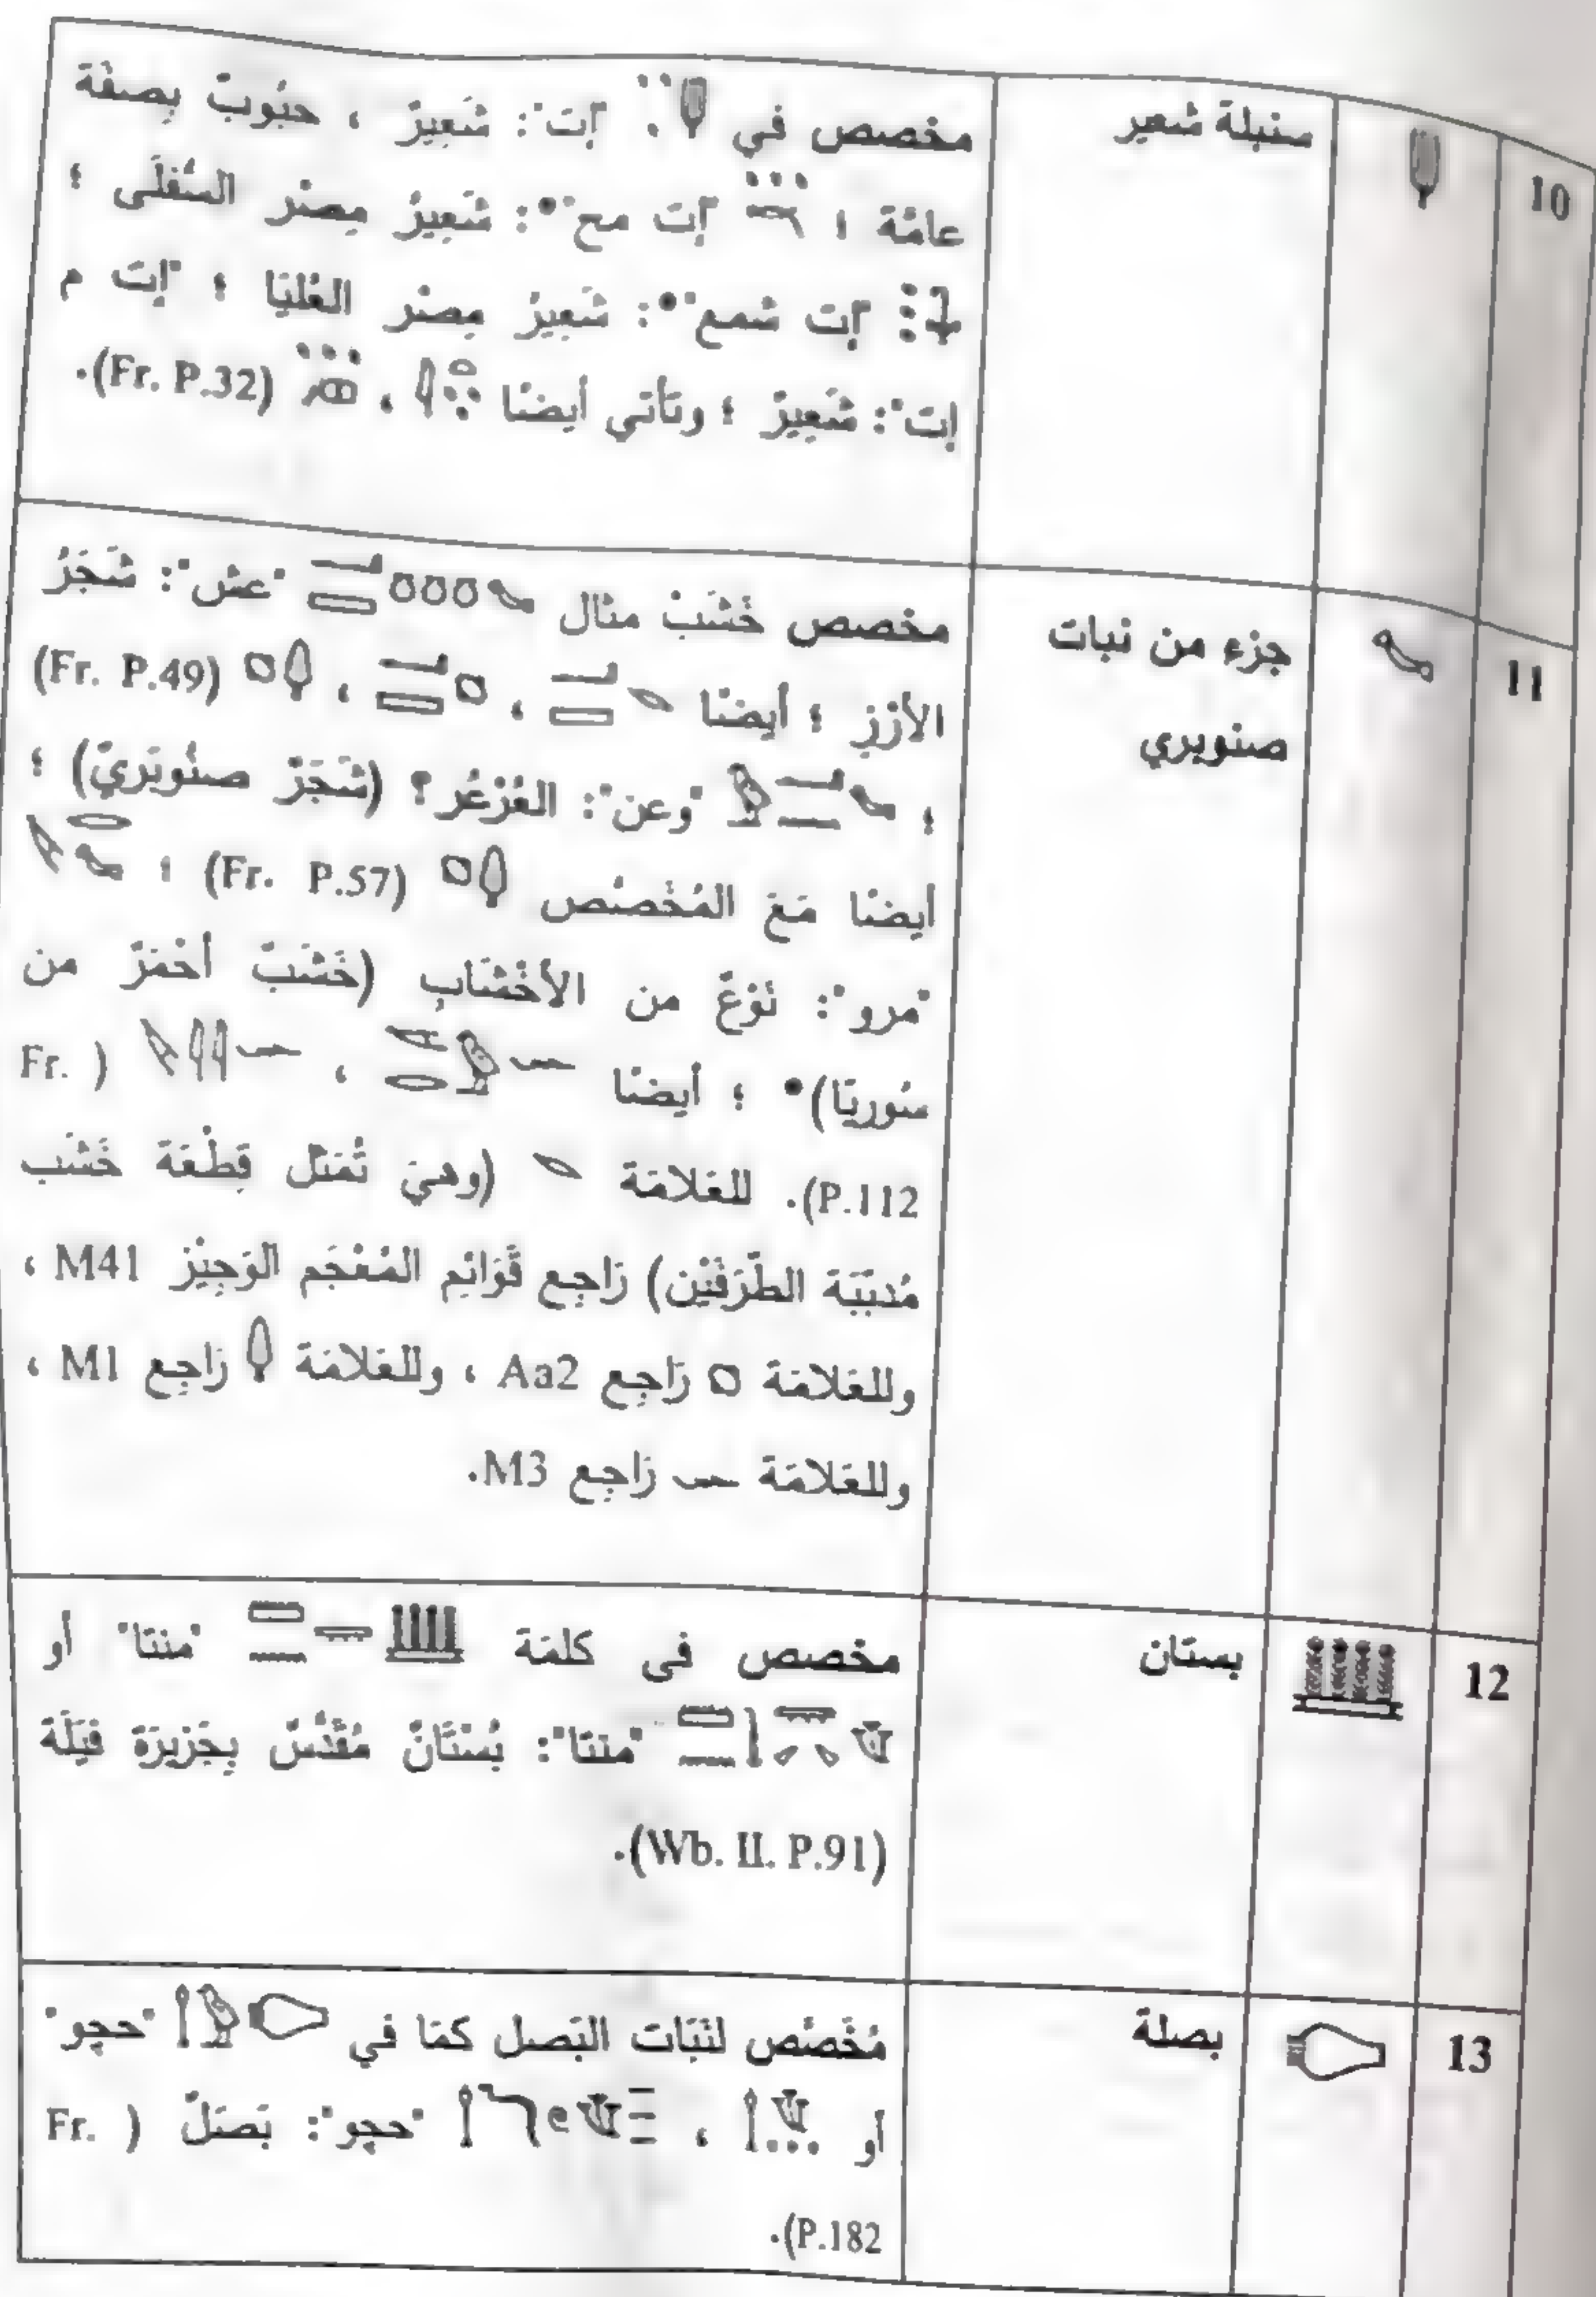 10
سنبلة شعير
مخصص في "إت": شَعِيرٌ ، حبُوبٌ بِصفَة
عامّة ؛ "إت مح"•: شَعِيرُ مِصْر السُفلَى ؛
"إت شمع"•: شَعِيرُ مِصْر العُليَا ؛ "إت م
إت": شَعِيرٌ ؛ وتَأتي أيضًا ، (Fr. P.32).
11
جزء من نبات
صنوبري
مخصص خَشَبْ مثال "عش": شَجَرُ
الأرْزِ ؛ أيضًا ، ، (Fr. P.49)
؛ "وعن": العُرْعُر؟ (شَجَرٌ صنُوبَريّ) ؛
أيضًا مَعَ المُخْصَّص (Fr. P.57) ؛
"مرو": نَوْعٌ من الأخْشَابِ (خَشَبٌ أحْمَرٌ من
سُوريَا)• ؛ أيضًا ، ( Fr.
P.112). للعَلامَة (وهيَ تُمَثل قِطْعَة خَشَب
مُدبّبَة الطّرَفَيْن) رَاجِع قَوَائِم المُعْجَم الوَجِيْز M41 ،
وللعَلامَة رَاجِع Aa2 ، وللعَلامَة رَاجِع M1 ،
وللعَلامَة رَاجِع M3.
12
بستان
مخصص في كلمَة "منتا" أو
"منتا": بُسْتَانٌ مُقَدَّسٌ بِجَزيرَة فيَلَة
(Wb. II. P.91).
13
بصلة
مُخَصَّص لنَبَات البَصل كمَا في "حجو"
أو ، "حجو": بَصَلٌ ( Fr.
P.182).